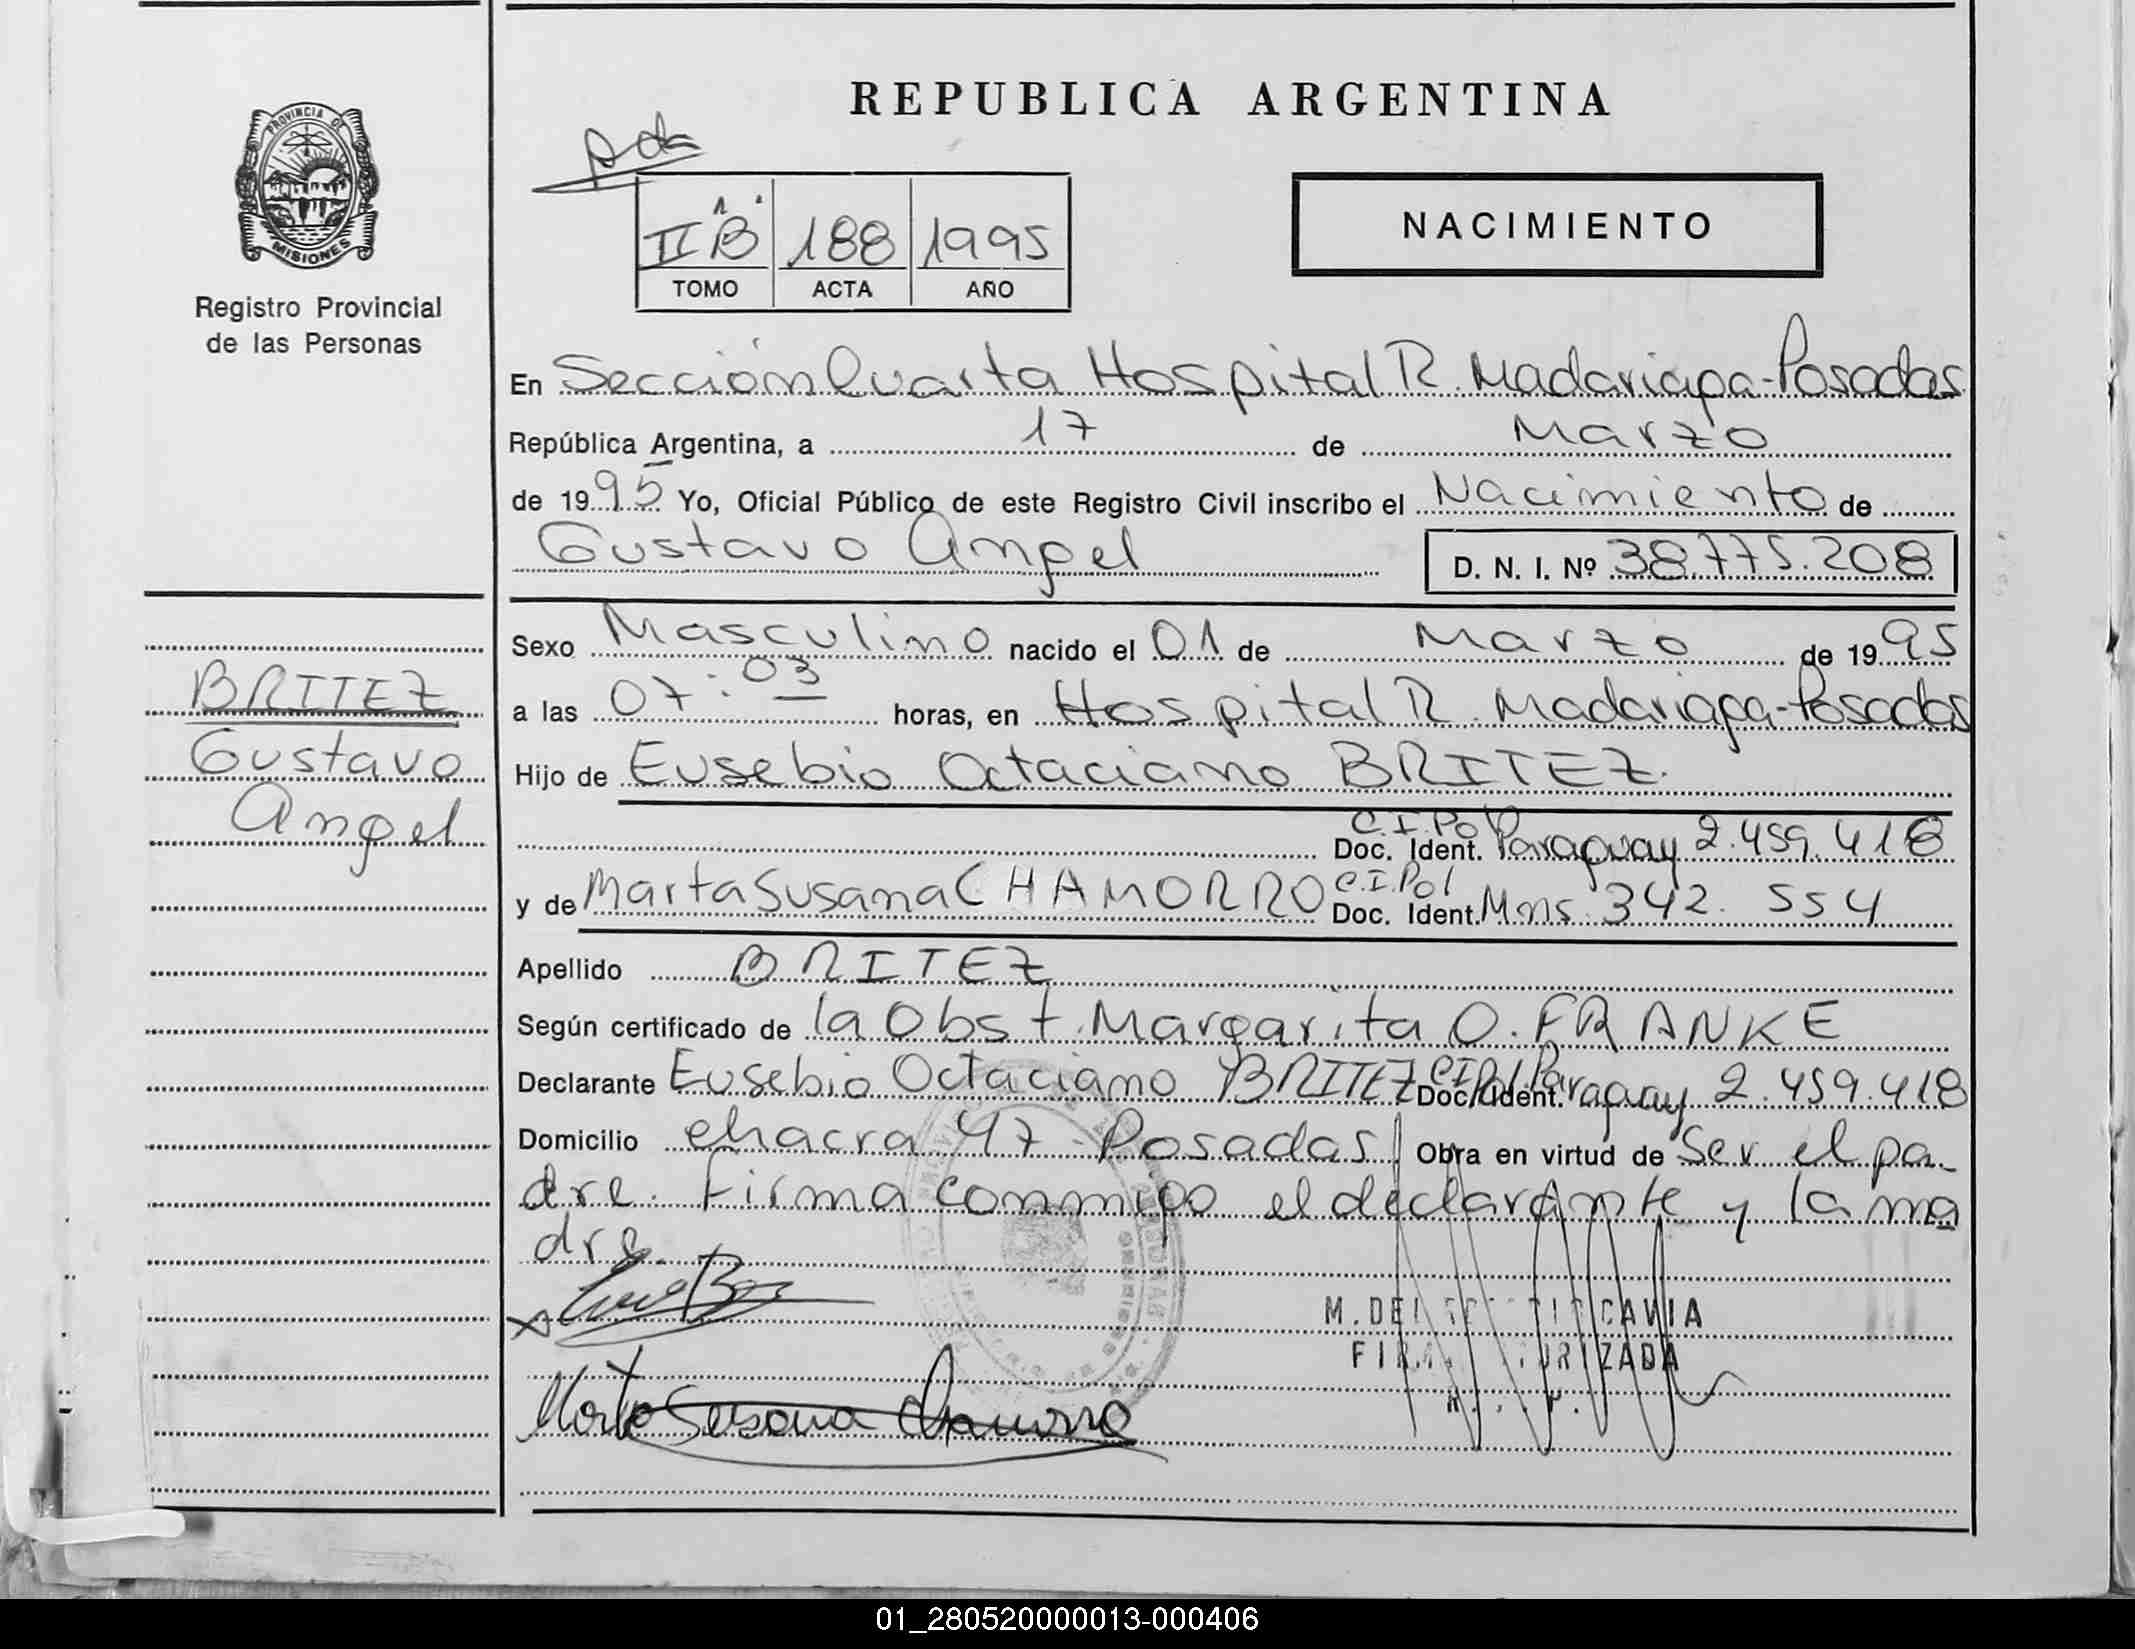 REPUBLICA ARGENTINA
PROVINCIA DE
MISIONES
Registro Provincial
de las Personas
II B 188 1995
TOMO ACTA AÑO
NACIMIENTO
En Sección Cuarta Hospital R. Madariaga-Posadas
República Argentina, a 17 de Marzo
de 1995 Yo, Oficial Público de este Registro Civil inscribo el Nacimiento de
Gustavo Angel D. N. I. Nº 38.775.208
BRITEZ
Gustavo
Angel
Sexo Masculino nacido el 01 de Marzo de 1995
a las 07:03 horas, en Hospital R. Madariaga-Posadas
Hijo de Eusebio Octaciano BRITEZ.
C.I.Pol
Doc. Ident. Paraguay 2.459.418
C.I.Pol
y de Marta Susana CHAMORRO Doc. Ident. Mns 342.554
Apellido BRITEZ
Según certificado de la Obst. Margarita O. FRANKE
Declarante Eusebio Octaciano BRITEZ C.I.Pol Doc. Ident. Paraguay 2.459.418
Domicilio chacra 47 - Posadas Obra en virtud de Ser el pa-
dre. Firma conmigo el declarante y la ma
dre.
M. DEL CAVIA
FIRMA AUTORIZADA
Marta Susana Chamorro
01_280520000013-000406